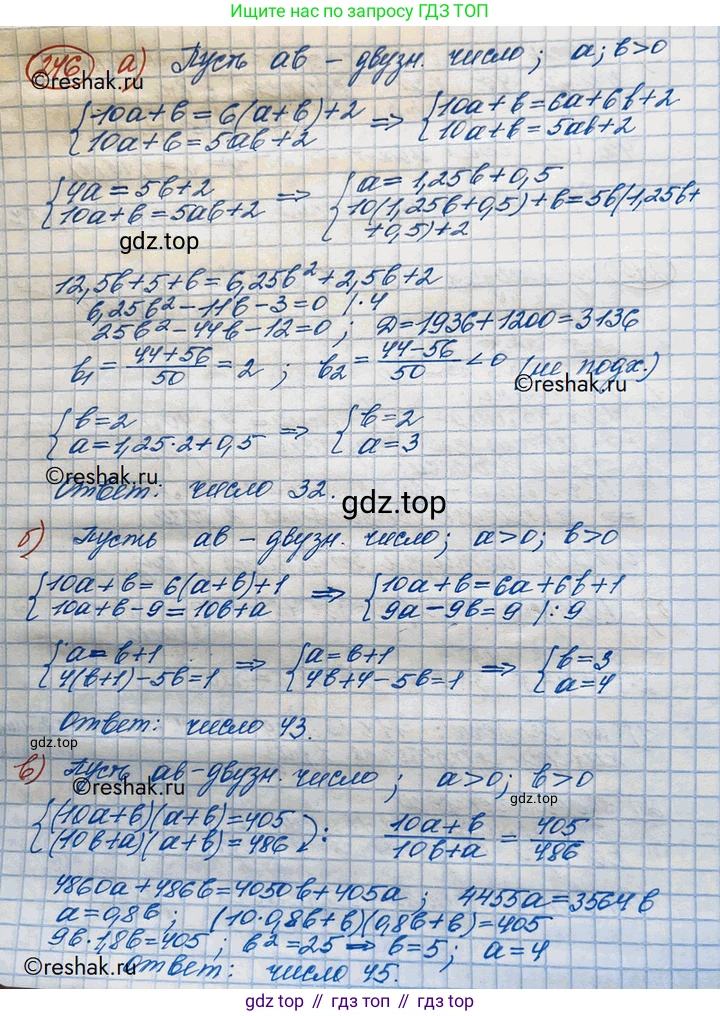 Ищите ответы по запросу ГДЗ ТОП
246 а) Пусть ав – двузн. число; а; в>0
{-10а+в=6(а+в)+2 => {10а+в=6а+6в+2
{10а+в=5ав+2 {10а+в=5ав+2
{4а=5в+2 => {а=1,25в+0,5
{10а+в=5ав+2 {10(1,25в+0,5)+в=5в(1,25в+
+0,5)+2
gdz.top
12,5в+5+в=6,25в²+2,5в+2
6,25в²-11в-3=0 |·4
25в²-44в-12=0; Д=1936+1200=3136
в₁=(44+56)/50=2; в₂=(44-56)/50<0 (не подх.)
©reshak.ru
{в=2 => {в=2
{а=1,25·2+0,5 {а=3
©reshak.ru
Ответ: число 32.
gdz.top
б) Пусть ав – двузн. число; а>0; в>0
{10а+в=6(а+в)+1 => {10а+в=6а+6в+1
{10а+в-9=10в+а {9а-9в=9 |:9
{а=в+1 => {а=в+1 => {в=3
{4(в+1)-5в=1 {4в+4-5в=1 {а=4
Ответ: число 43.
gdz.top
в) Пусть ав-двузн. число; а>0; в>0
©reshak.ru
gdz.top
{(10а+в)(а+в)=405 ): (10а+в)/(10в+а)=405/486
{(10в+а)(а+в)=486
4860а+486в=4050в+405а; 4455а=3564в
а=0,8в; (10·0,8в+в)(0,8в+в)=405
9в·1,8в=405; в²=25 => в=5; а=4
©reshak.ru
Ответ: число 45.
gdz.top // гдз топ // gdz.top